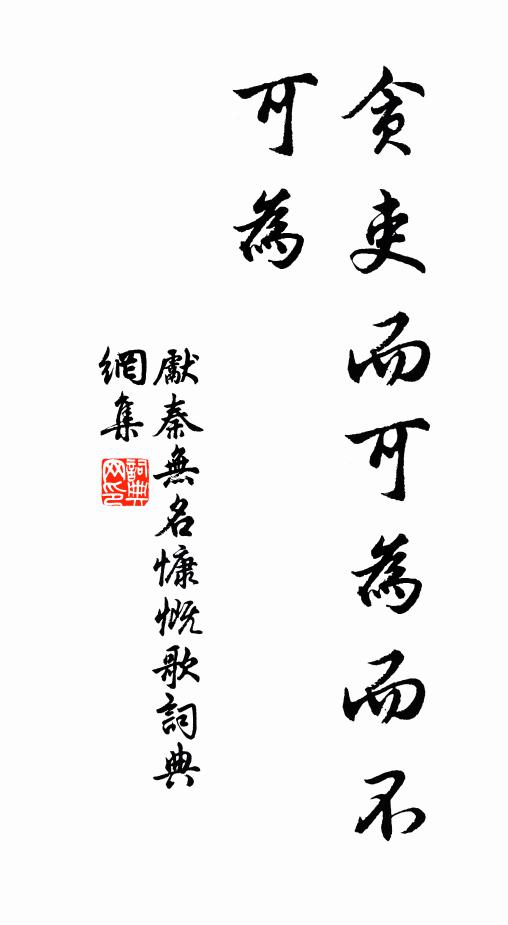 貪吏而可為而不
可為
獻秦無名慷慨歌詞典
網集
詞典
网印